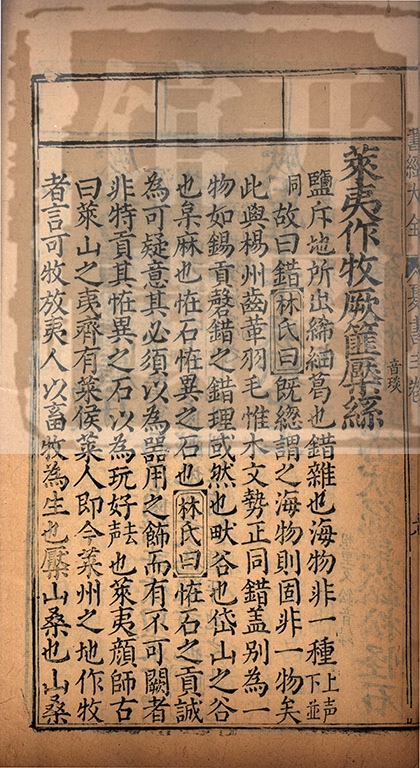 萊夷作牧厥篚檿絲
音琰
鹽斥地所出絺細葛也錯雜也海物非一種上声下並
同故曰錯林氏曰既緫謂之海物則固非一物矣
此與楊州齒革羽毛惟木文勢正同錯盖別為一
物如錫貢磬錯之錯理或然也畎谷也岱山之谷
也枲麻也恠石恠異之石也林氏曰恠石之貢誠
為可疑意其必須以為器用之餙而有不可闕者
非特貢其恠異之石以為玩好去声也萊夷顔師古
曰萊山之夷齊有萊侯萊人即今萊州之地作牧
者言可牧放夷人以畜牧為生也檿山桑也山桑